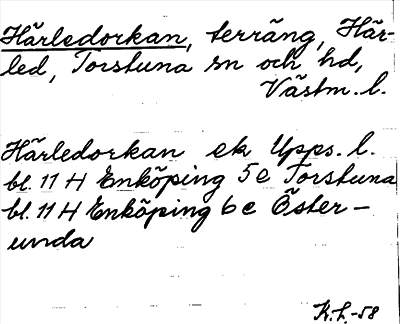 Härledorkan, terräng, Här-
led, Torstuna sn och hd,
Västm. l.
Härledorkan ek Upps. l.
bl. 11 H Enköping 5 e Torstuna
bl. 11 H Enköping 6 e Öster-
unda
K.L.-58